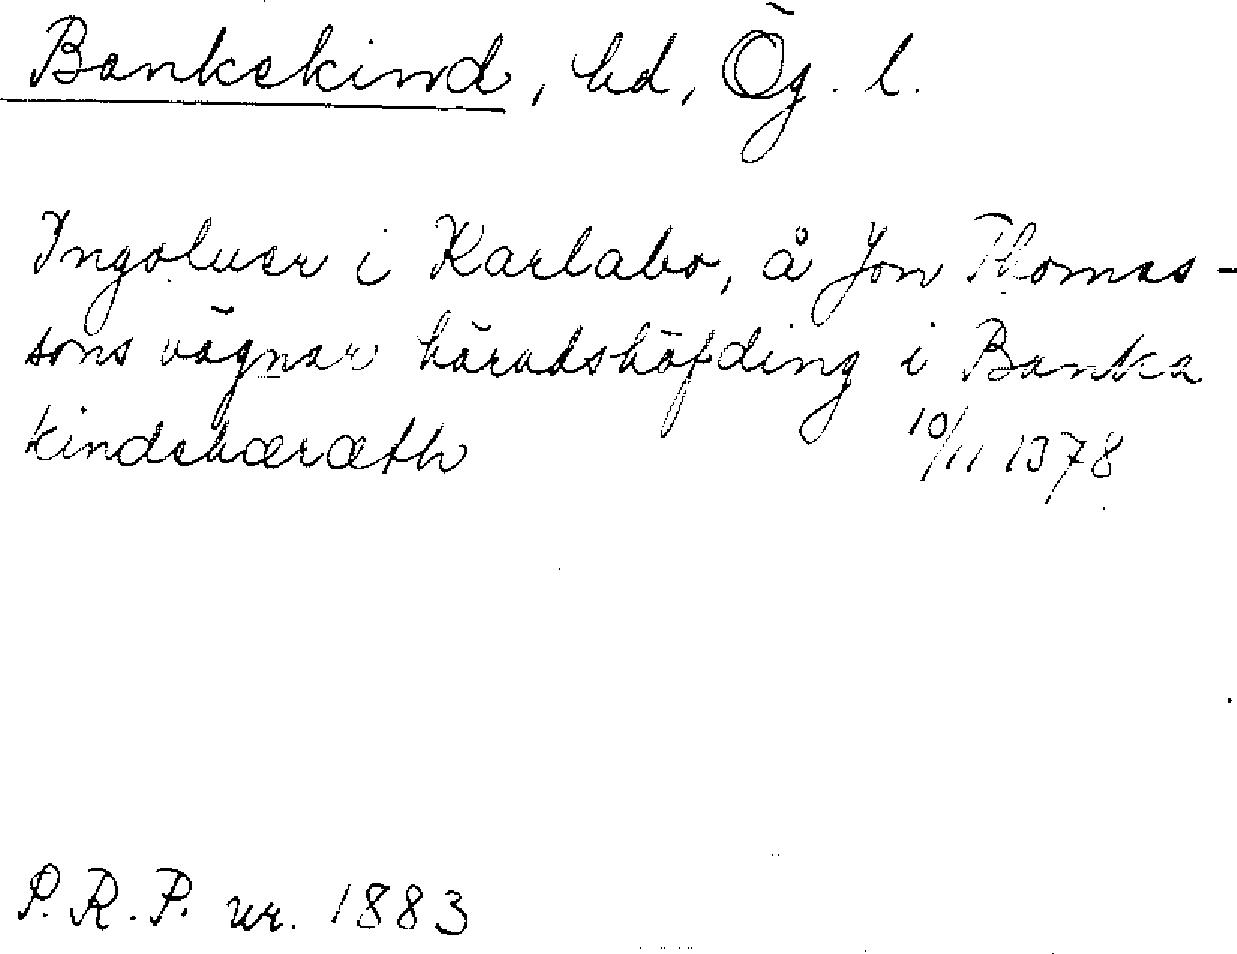 Bankekind, hd, Ög. l.
Ingoluer i Karlabo, å Jon Thomas-
sons vägnar häradshöfding i Banka
kindshæræth 10/11 1378
P.R.P. nr. 1883